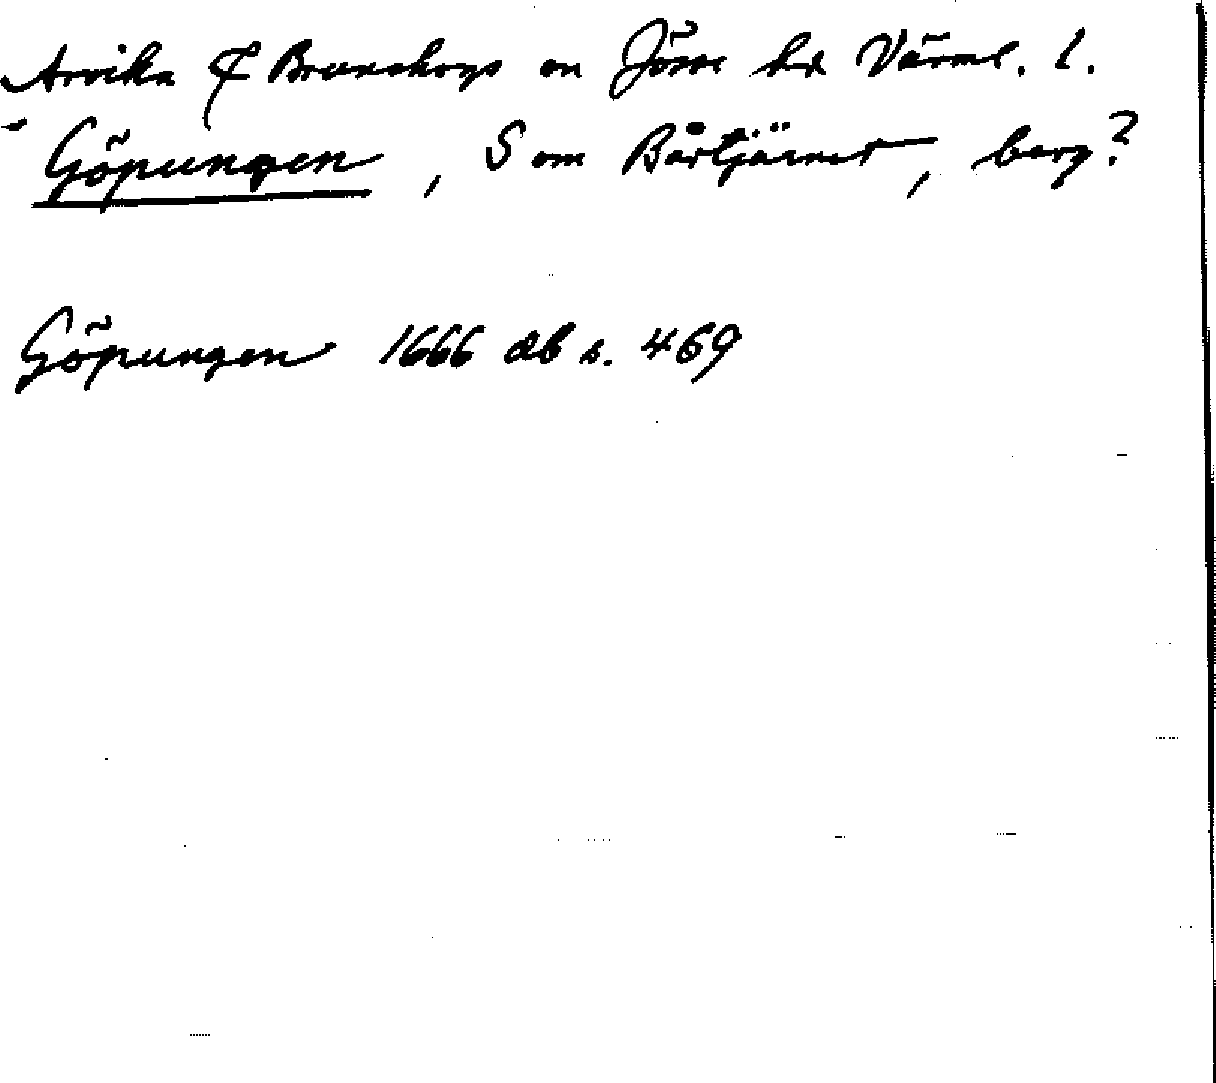 Arvika & Brunskogs sn Jösse hd Värml. l.
Göpungen, S om Bårtjärnet, berg?
Göpungen 1666 db s. 469